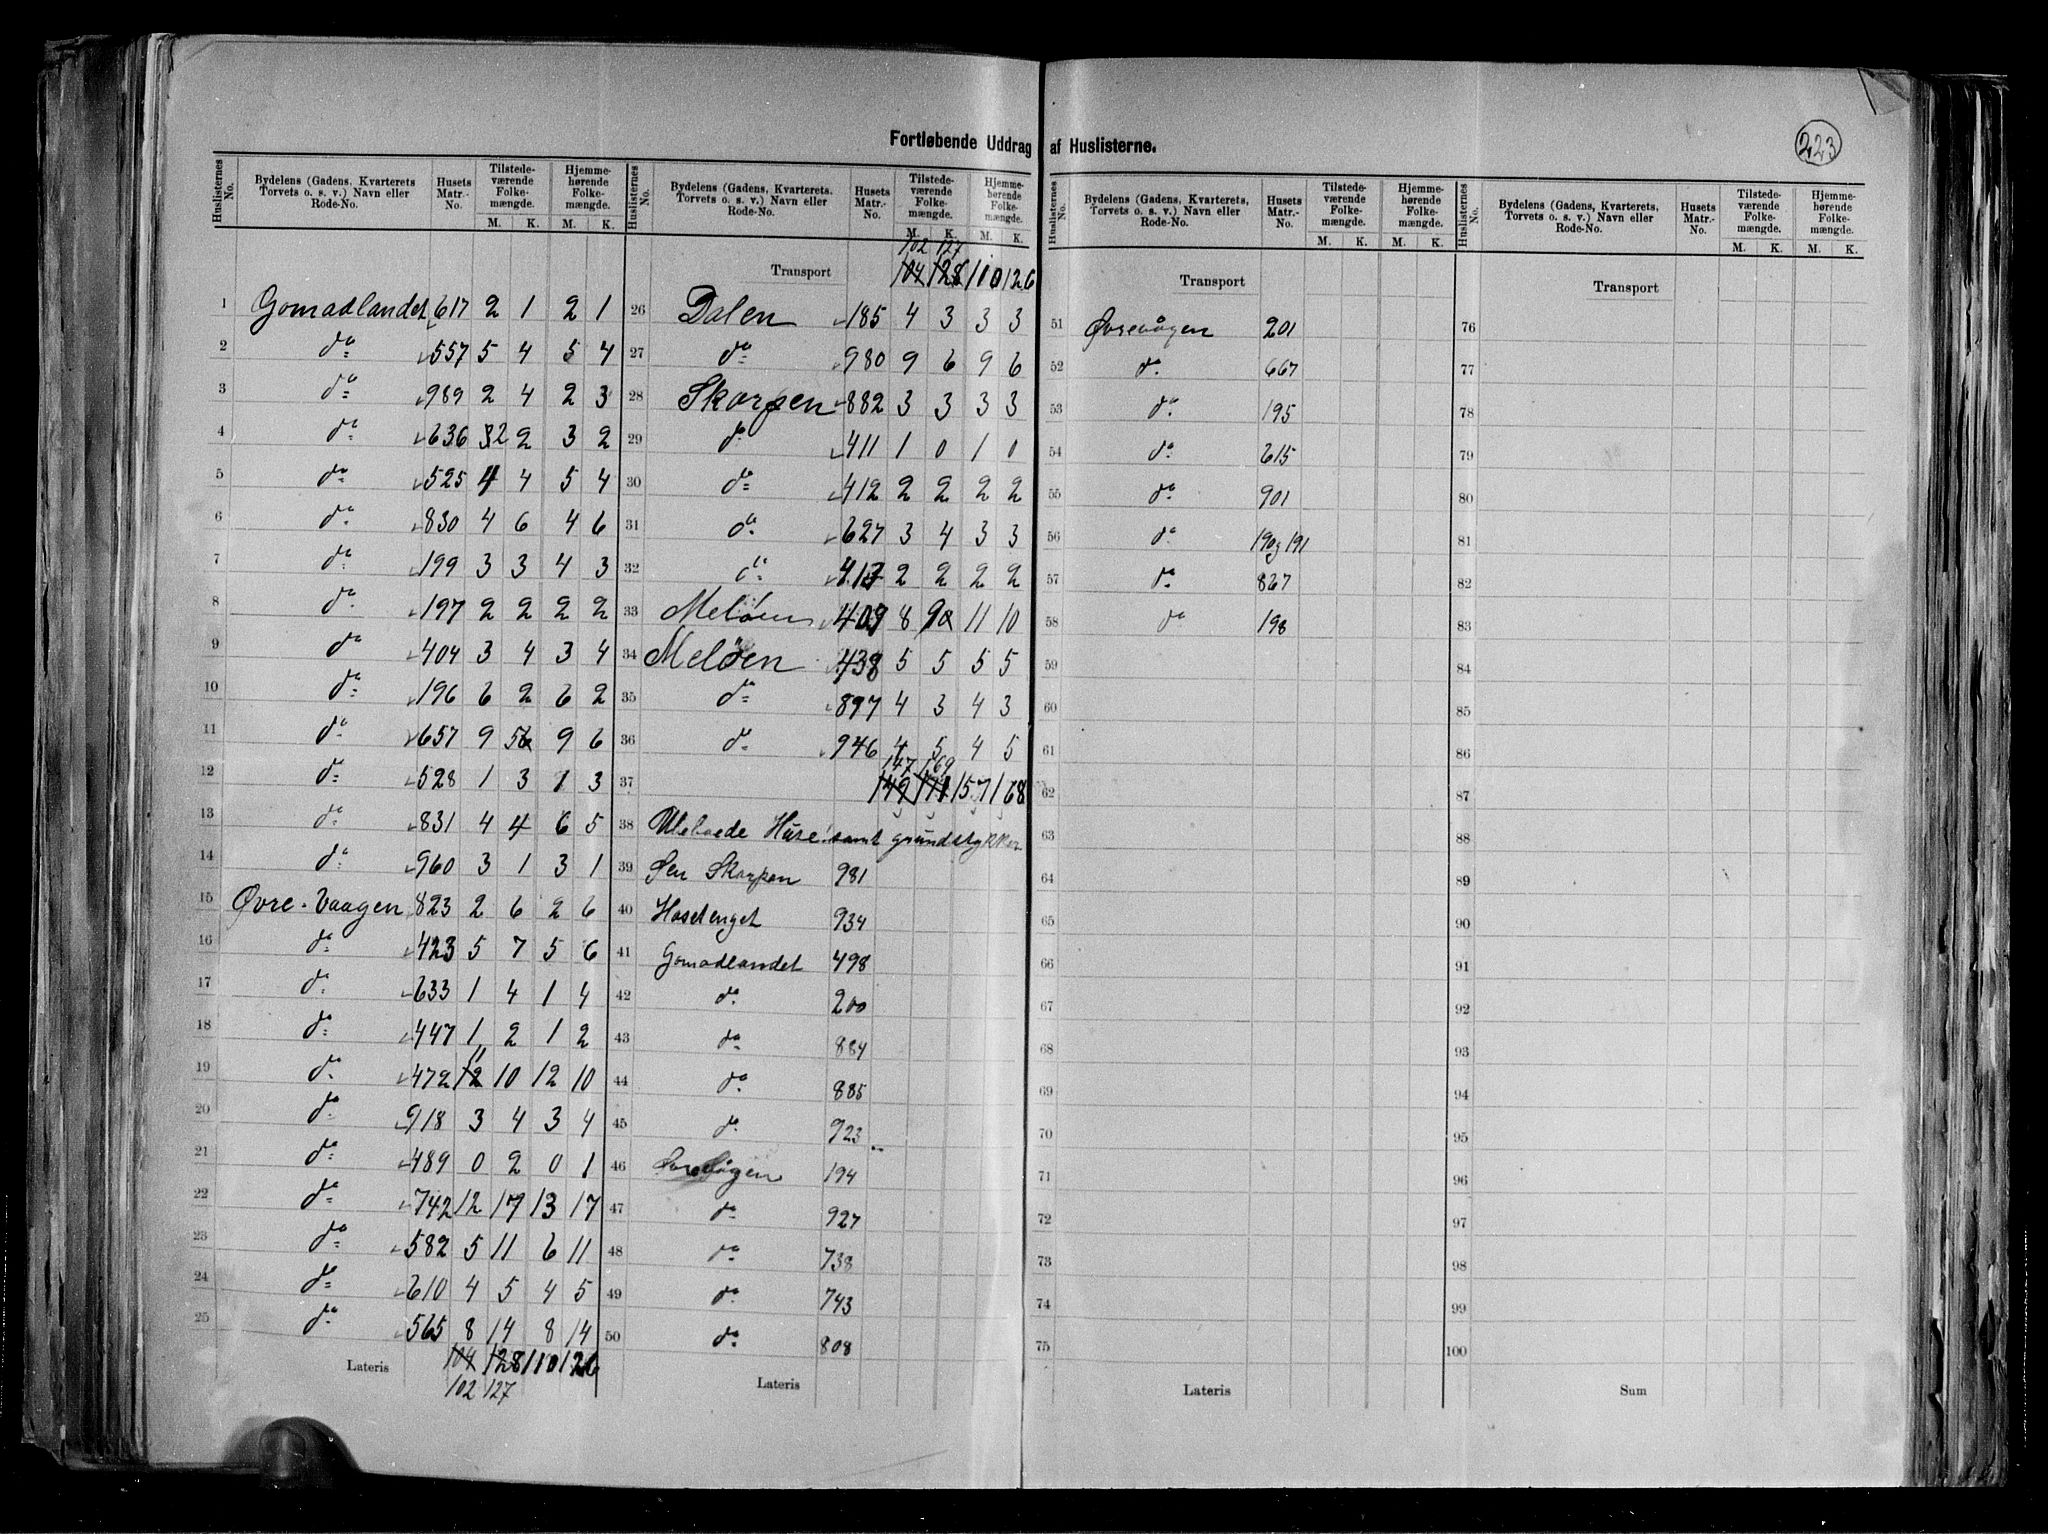 Fortløbende Uddrag af Huslisterne.
223
Huslisternes No. | Bydelens (Gadens, Kvarterets Torvets o. s. v.) Navn eller Rode-No. | Husets Matr.-No. | Tilstedeværende Folkemængde. M. K. | Hjemmehørende Folkemængde. M. K.
1 Gomadlandet 617 2 1 2 1
2 do 557 5 4 5 4
3 do 989 2 4 2 3
4 do 636 32 2 3 2
5 do 525 4 4 5 4
6 do 830 4 6 4 6
7 do 199 3 3 4 3
8 do 197 2 2 2 2
9 do 404 3 4 3 4
10 do 196 6 2 6 2
11 do 657 9 56 9 6
12 do 528 1 3 1 3
13 do 831 4 4 6 5
14 do 960 3 1 3 1
15 Øvre-Vaagen 823 2 6 2 6
16 do 423 5 7 5 6
17 do 633 1 4 1 4
18 do 447 1 2 1 2
11
19 do 472 12 10 12 10
20 do 918 3 4 3 4
21 do 489 0 2 0 1
22 do 742 12 17 13 17
23 do 582 5 11 6 11
24 do 610 4 5 4 5
25 do 565 8 14 8 14
Lateris 104 128 110 126
102 127
Huslisternes No. | Bydelens (Gadens, Kvarterets, Torvets o. s. v.) Navn eller Rode-No. | Husets Matr.-No. | Tilstedeværende Folkemængde. M. K. | Hjemmehørende Folkemængde. M. K.
102 127
Transport 104 128 110 126
26 Dalen 185 4 3 3 3
27 do 980 9 6 9 6
28 Skorpen 882 3 3 3 3
29 do 411 1 0 1 0
30 do 412 2 2 2 2
31 do 627 3 4 3 3
32 do 413 2 2 2 2
33 Meløen 409 8 9 11 10
34 Meløen 438 5 5 5 5
35 do 897 4 3 4 3
36 do 946 4 5 4 5
147 169
37 149 171 157 168
38 Ubeboede Huse samt grundstykker
39 Skorpen 981
40 Hasetenget 934
41 Gomadlandet 498
42 do 200
43 do 884
44 do 885
45 do 923
46 194
47 do 927
48 do 738
49 do 743
50 do 808
Lateris
Huslisternes No. | Bydelens (Gadens, Kvarterets, Torvets o. s. v.) Navn eller Rode-No. | Husets Matr.-No. | Tilstedeværende Folkemængde. M. K. | Hjemmehørende Folkemængde. M. K.
Transport
51 Øvrevågen 201
52 do 667
53 do 195
54 do 615
55 do 901
56 do 190g191
57 do 867
58 do 198
59
60
61
62
63
64
65
66
67
68
69
70
71
72
73
74
75
Lateris
Huslisternes No. | Bydelens (Gadens, Kvarterets, Torvets o. s. v.) Navn eller Rode-No. | Husets Matr.-No. | Tilstedeværende Folkemængde. M. K. | Hjemmehørende Folkemængde. M. K.
Transport
76
77
78
79
80
81
82
83
84
85
86
87
88
89
90
91
92
93
94
95
96
97
98
99
100
Sum